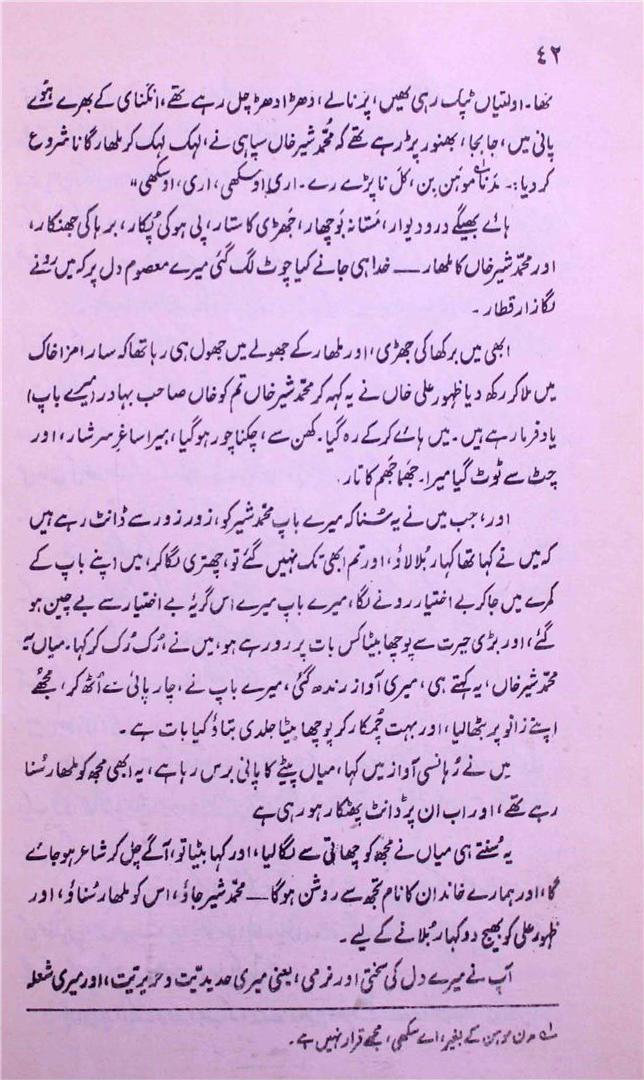 ۴۲
تھا۔ اولتیاں ٹپک رہی تھیں، پرنالے، دھڑا دھڑ چل رہے تھے، انگنای کے بھرے ہوئے
پانی میں، جا بجا، بھنور پڑ رہے تھے کہ محمد شیر خاں سپاہی نے، لہک لہک کر ملھار گانا شروع
کر دیا:۔ مدنا موہن بن، کل نا پڑے رے۔ اری! او سکھی، اری، او سکھی"
ہائے بھیگے در و دیوار، مستانہ بوچھار، جھڑی کا ستار، پی ہو کی پکار، برہا کی جھنکار،
اور محمد شیر خاں کا ملھار ــــ خدا ہی جانے کیا چوٹ لگ گئی میرے معصوم دل پر کہ میں رونے
لگا زار قطار۔
ابھی میں برکھا کی جھڑی، اور ملھار کے جھولے میں جھول ہی رہا تھا کہ سارا مزا خاک
میں ملا کر رکھ دیا ظہور علی خاں نے یہ کہہ کر محمد شیر خاں تم کو خاں صاحب بہادر (میرے باپ)
یاد فرما رہے ہیں۔ میں ہائے کر کے رہ گیا۔ کھن سے، چکنا چور ہو گیا، میرا ساغرِ سرشار، اور
چٹ سے ٹوٹ گیا میرا۔ جھما جھم کا تار۔
اور، جب میں نے یہ سُنا کہ میرے باپ محمد شیر کو، زور زور سے ڈانٹ رہے ہیں
کہ میں نے کہا تھا کہار بُلا لاؤ، اور تم ابھی تک نہیں گئے تو، چھتری لگا کر، میں اپنے باپ کے
کمرے میں جا کر بے اختیار رونے لگا، میرے باپ میرے اس گریۂ بے اختیار سے بے چین ہو
گئے، اور بڑی حیرت سے پوچھا بیٹا کس بات پر رو رہے ہو، میں نے، رُک رُک کر کہا۔ میاں یہ
محمد شیر خاں، یہ کہتے ہی، میری آواز رندھ گئی، میرے باپ نے، چارپائی سے اُٹھ کر، مجھے
اپنے زانو پر بٹھا لیا، اور بہت چُمکار کر پوچھا بیٹا جلدی بتاؤ کیا بات ہے۔
میں نے رُہانسی آواز میں کہا، میاں پیٹے کا پانی برس رہا ہے، یہ ابھی مجھ کو ملھار سُنا
رہے تھے، اور اب ان پر ڈانٹ پھٹکار ہو رہی ہے
یہ سُنتے ہی میاں نے مجھ کو چھاتی سے لگا لیا، اور کہا بیٹا تو، آگے چل کر شاعر ہو جائے
گا، اور ہمارے خاندان کا نام تجھ سے روشن ہوگا ــــ محمد شیر جاؤ، اس کو ملھار سُناؤ، اور
ظہور علی کو بھیج دو کہار بُلانے کے لیے۔
آپ نے میرے دل کی سختی اور نرمی، یعنی میری حدیدیّت و حریریّت، اور میری شعلہ
لہ مدن موہن کے بغیر، اے سکھی، مجھے قرار نہیں ہے۔